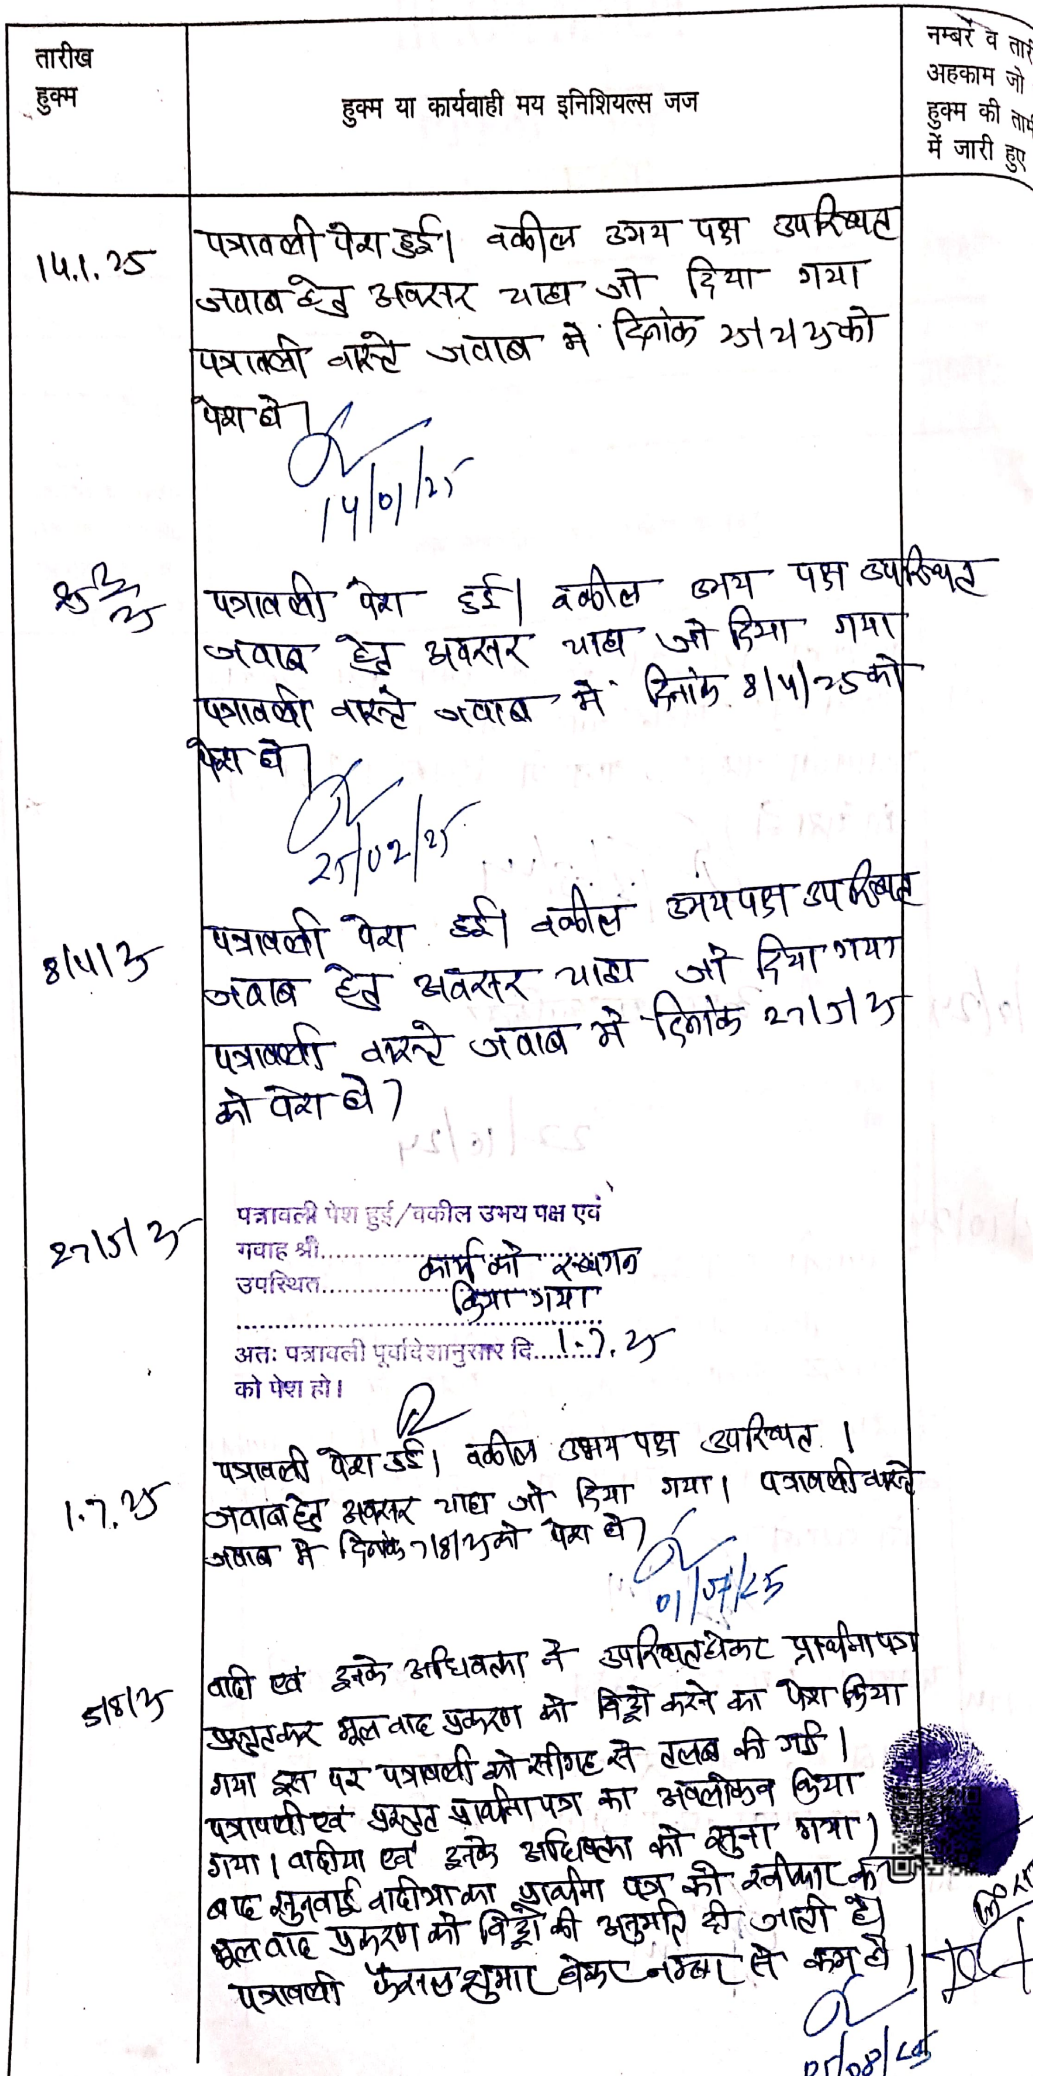 तारीख
हुक्म
हुक्म या कार्यवाही मय इनिशियल्स जज
नम्बरें व तारी
अहकाम जो
हुक्म की तामी
में जारी हुए
14.1.25
पत्रावली पेश हुई। वकील उभय पक्ष उपस्थित
जवाब हेतु अवसर चाहा जो दिया गया
पत्रावली वास्ते जवाब में दिनांक 25/2/25 को
पेश हो।
14/01/25
25/2/25
पत्रावली पेश हुई। वकील उभय पक्ष उपस्थित
जवाब हेतु अवसर चाहा जो दिया गया
पत्रावली वास्ते जवाब में दिनांक 8/4/25 को
पेश हो।
25/02/25
8/4/25
पत्रावली पेश हुई। वकील उभय पक्ष उपस्थित
जवाब हेतु अवसर चाहा जो दिया गया
पत्रावली वास्ते जवाब में दिनांक 27/5/25
को पेश हो।
27/5/25
पत्रावली पेश हुई/वकील उभय पक्ष एवं
गवाह श्री..............................
उपस्थित............कार्य को स्थगन
किया गया
अतः पत्रावली पूर्वादेशानुसार दि.....1.7.25
को पेश हो।
1.7.25
पत्रावली पेश हुई। वकील उभय पक्ष उपस्थित।
जवाब हेतु अवसर चाहा जो दिया गया। पत्रावली वास्ते
जवाब में दिनांक 7/8/25 को पेश हो।
01/07/25
5/8/25
वादी एवं इनके अधिवक्ता ने उपस्थित होकर प्रार्थना पत्र
प्रस्तुत कर मूल वाद प्रकरण को विड्रो करने का पेश किया
गया इस पर पत्रावली को सीगह से तलब की गई।
पत्रावली एवं प्रस्तुत प्रार्थना पत्र का अवलोकन किया
गया। वादीया एवं इनके अधिवक्ता को सुना गया।
बाद सुनवाई वादीया का प्रार्थना पत्र को स्वीकार कर
मूल वाद प्रकरण को विड्रो की अनुमति दी जाती है।
पत्रावली फैसल शुमार होकर नम्बर से कम हो।
05/08/25